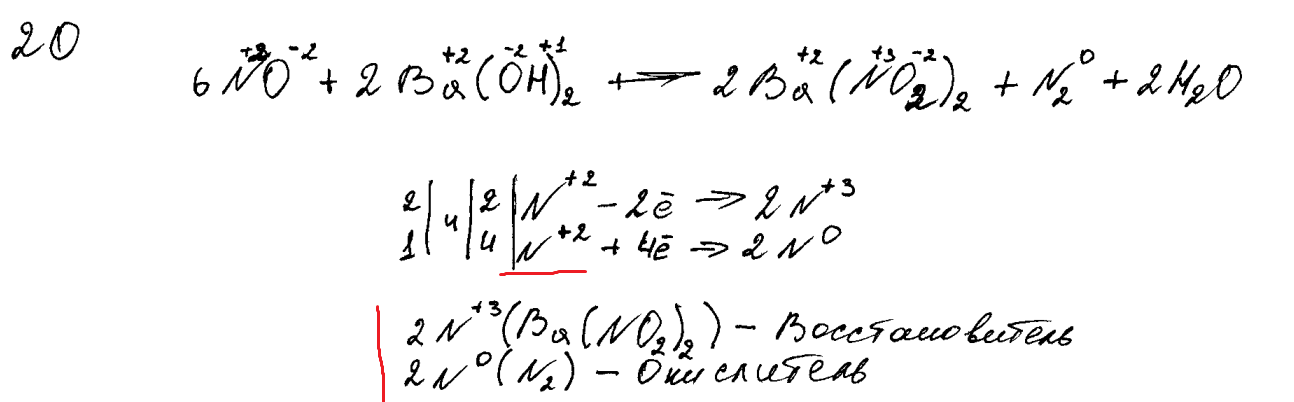 20
6 N⁺²O⁻² + 2 Ba⁺²(O⁻²H⁺¹)₂ → 2 Ba⁺²(N⁺³O₂⁻²)₂ + N₂⁰ + 2H₂O
2 | 4 | 2 | N⁺² − 2ē ⇒ 2 N⁺³
1 | | 4 | N⁺² + 4ē ⇒ 2 N⁰
2 N⁺³ (Ba(NO₂)₂) − Восстановитель
2 N⁰ (N₂) − Окислитель